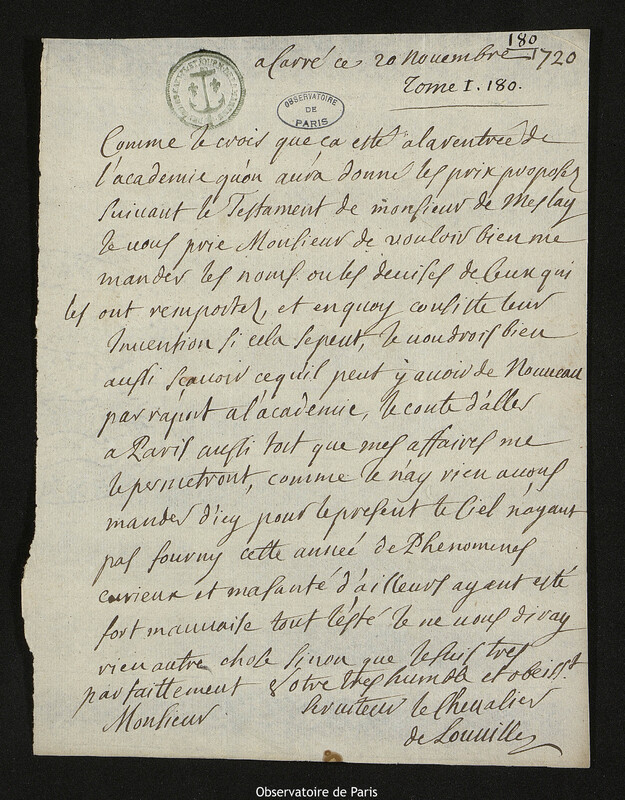 180
a Carré ce 20 Novembre 1720
Tome I. 180.
OBSERVATOIRE
DE
PARIS
Comme Je crois que ça esté a la rentrée de
l'academie qu'on aura donné les prix proposez
suivant le Testament de monsieur de Meslay
Je vous prie Monsieur de vouloir bien me
mander les noms ou les devises de Ceux qui
les ont remportez, et en quoy consiste leur
Invention si cela se peut, Je voudrois bien
aussi sçavoir ce qu'il peut y avoir de Nouveau
par raport a l'academie, Je conte d'aller
a Paris aussi tost que mes affaires me
le permetront, comme Je n'ay rien a vous
mander d'icy pour le present le Ciel n'ayant
pas fourny cette année de Phenomenes
curieux et ma santé d'ailleurs ayant esté
fort mauvaise tout l'esté Je ne vous diray
rien autre chose sinon que Je suis tres
parfaittement Votre tres humble et obeisst.
Monsieur Serviteur le Chevalier
de Louville
Observatoire de Paris